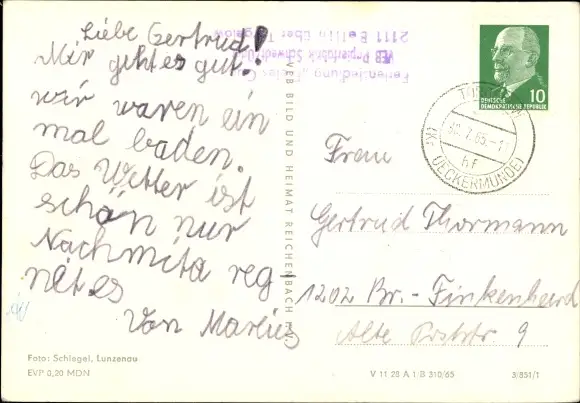 Liebe Gertrud!
Mir geht es gut,
wir waren ein
mal baden.
Das Wetter ist
schön nur
Nachmita reg
net es
Von Marlies
Foto: Schlegel, Lunzenau
EVP 0,20 MDN
VEB BILD UND HEIMAT REICHENBACH
FerienSiedlung
VEB Papierfabrik Schwedt/Od
2111 Bellin über
DEUTSCHE
DEMOKRATISCHE REPUBLIK
10
30.7.65.-11
hf
(Kr UECKERMÜNDE)
Frau
Gertrud Thormann
1202 Br.-Finkenheerd
Alte Poststr. 9
V 11 28 A 1 B 310/65
3/851/1